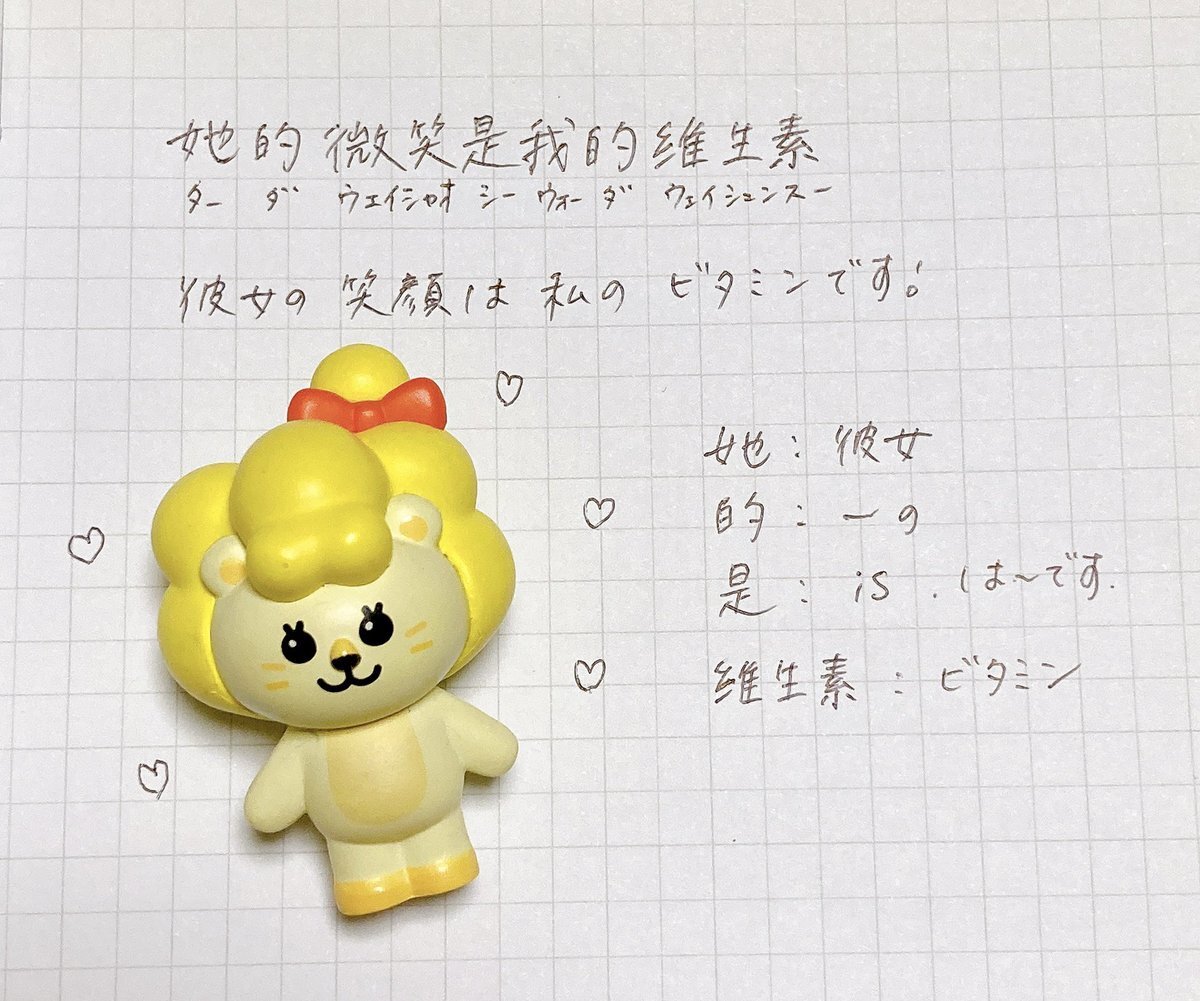 她的微笑是我的维生素
ター ダ ウェイシャオ シー ウォーダ ウェイシェンスー
彼女の笑顔は私のビタミンです!
她:彼女
的:ーの
是:is.は〜です.
维生素:ビタミン